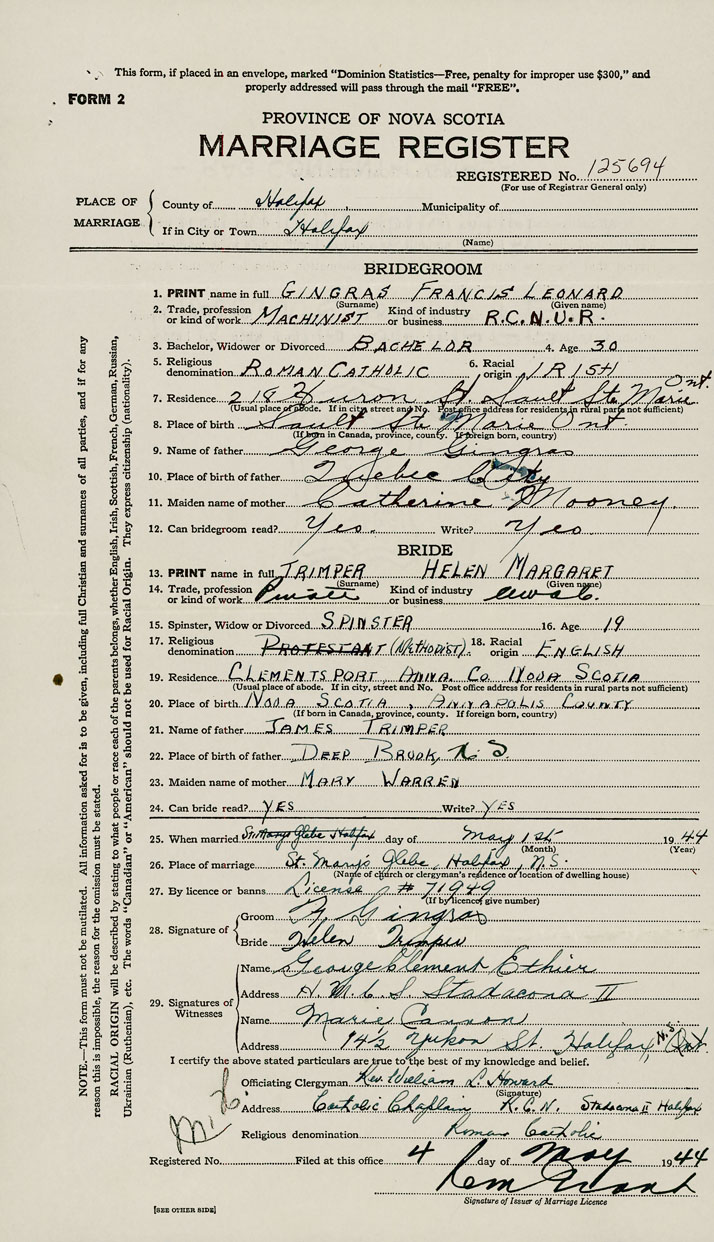 This form, if placed in an envelope, marked "Dominion Statistics—Free, penalty for improper use $300," and
properly addressed will pass through the mail "FREE".
FORM 2
PROVINCE OF NOVA SCOTIA
MARRIAGE REGISTER
REGISTERED No. 125694
(For use of Registrar General only)
PLACE OF MARRIAGE
County of Halifax Municipality of
If in City or Town Halifax
(Name)
BRIDEGROOM
1. PRINT name in full GINGRAS FRANCIS LEONARD
(Surname) (Given name)
2. Trade, profession or kind of work MACHINIST Kind of industry or business R.C.N.V.R.
3. Bachelor, Widower or Divorced BACHELOR 4. Age 30
5. Religious denomination ROMAN CATHOLIC 6. Racial origin IRISH
7. Residence 218 Huron St. Sault Ste Marie Ont.
(Usual place of abode. If in city, street and No. Post office address for residents in rural parts not sufficient)
8. Place of birth Sault Ste Marie Ont.
(If born in Canada, province, county. If foreign born, country)
9. Name of father George Gingras
10. Place of birth of father Quebec City
11. Maiden name of mother Catherine Mooney.
12. Can bridegroom read? Yes. Write? Yes
BRIDE
13. PRINT name in full TRIMPER HELEN MARGARET
(Surname) (Given name)
14. Trade, profession or kind of work Private Kind of industry or business cwac.
15. Spinster, Widow or Divorced SPINSTER 16. Age 19
17. Religious denomination PROTESTANT (METHODIST). 18. Racial origin ENGLISH
19. Residence CLEMENTSPORT, ANNA. CO NOVA SCOTIA
(Usual place of abode. If in city, street and No. Post office address for residents in rural parts not sufficient)
20. Place of birth NOVA SCOTIA, ANNAPOLIS COUNTY
(If born in Canada, province, county. If foreign born, country)
21. Name of father JAMES TRIMPER
22. Place of birth of father DEEP BROOK, N.S.
23. Maiden name of mother MARY WARREN
24. Can bride read? YES Write? YES
25. When married St. Marys Glebe Halifax day of May 1st 1944
(Month) (Year)
26. Place of marriage St. Mary's Glebe, Halifax, N.S.
(Name of church or clergyman's residence or location of dwelling house)
27. By licence or banns License # 71949
(If by licence, give number)
28. Signature of
Groom F. Gingras
Bride Helen Trimper
29. Signatures of Witnesses
Name George Clement Ethier
Address H.M.C.S. Stadacona II
Name Marie Cannon
Address 94½ Yukon St. Halifax, N.S. Ont.
I certify the above stated particulars are true to the best of my knowledge and belief.
Officiating Clergyman Rev. William L. Howard
(Signature)
Address Catholic Chaplain R.C.N. Stadacona II Halifax
Religious denomination Roman Catholic
Registered No. Filed at this office 4 day of May 1944
Signature of Issuer of Marriage Licence
[SEE OTHER SIDE]
NOTE.—This form must not be mutilated. All information asked for is to be given, including full Christian and surnames of all parties, and if for any
reason this is impossible, the reason for the omission must be stated.
RACIAL ORIGIN will be described by stating to what people or race each of the parents belongs, whether English, Irish, Scottish, French, German, Russian,
Ukrainian (Ruthenian), etc. The words "Canadian" or "American" should not be used for Racial Origin. They express citizenship (nationality).